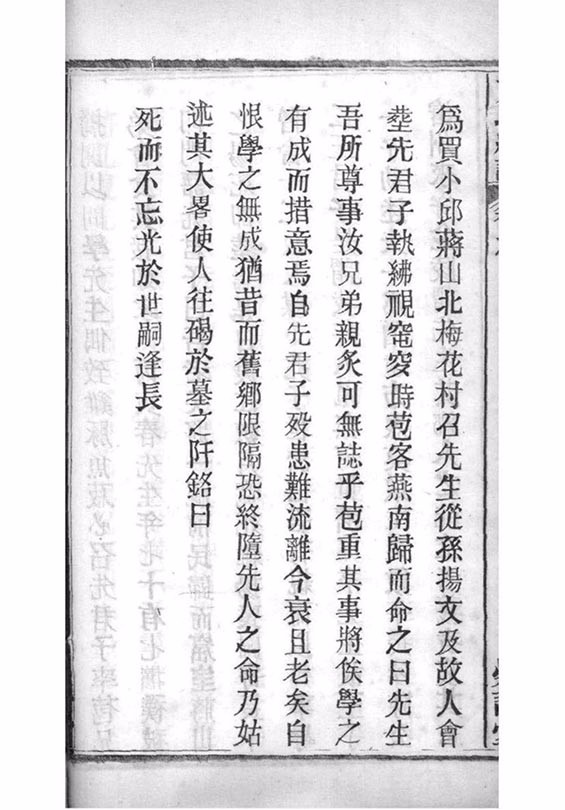 爲買小邱蔣山北梅花村召先生從孫揚文及故人會
塟先君子執紼視窀穸時苞客燕南歸而命之曰先生
吾所尊事汝兄弟親炙可無誌乎苞重其事將俟學之
有成而措意焉自先君子歿患難流離今衰且老矣自
恨學之無成猶昔而舊鄉限隔恐終墮先人之命乃姑
述其大畧使人往碣於墓之阡銘曰
死而不忘光於世嗣逢長